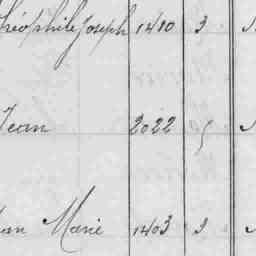 Théophile Joseph 1410 3
Jean 2022 5
Marie 1403 3